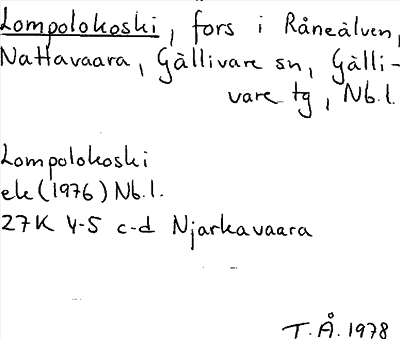 Lompolokoski, fors i Råneälven,
Nattavaara, Gällivare sn, Gälli-
vare tg, Nb.l.
Lompolokoski
ek (1976) Nb.l.
27K 4-5 c-d Njarkavaara
T.Å. 1978